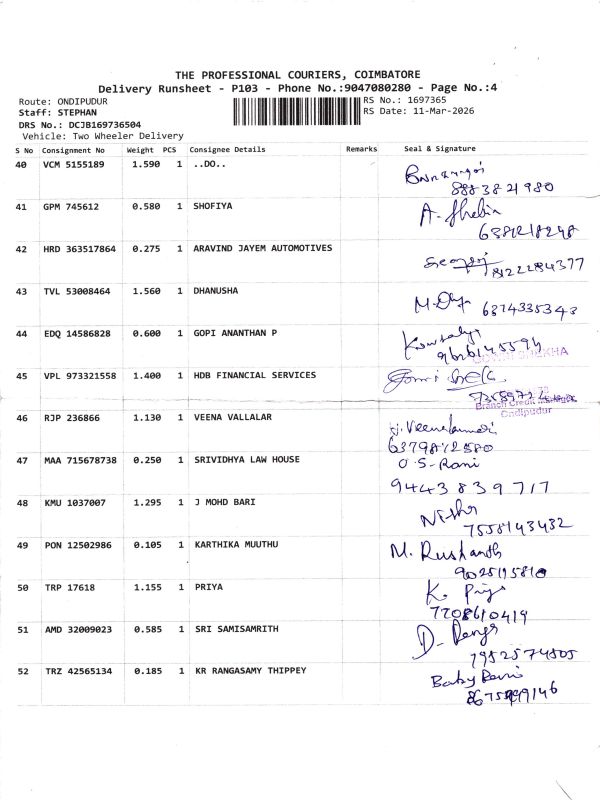 THE PROFESSIONAL COURIERS, COIMBATORE
Delivery Runsheet - P103 - Phone No.:9047080280 - Page No.:4
Route: ONDIPUDUR RS No.: 1697365
Staff: STEPHAN RS Date: 11-Mar-2026
DRS No.: DCJB169736504
Vehicle: Two Wheeler Delivery
S No Consignment No Weight PCS Consignee Details Remarks Seal & Signature
40 VCM 5155189 1.590 1 ..DO..
8883821980
41 GPM 745612 0.580 1 SHOFIYA A. Shebin
6381218248
42 HRD 363517864 0.275 1 ARAVIND JAYEM AUTOMOTIVES
8122284377
43 TVL 53008464 1.560 1 DHANUSHA 6374335343
44 EDQ 14586828 0.600 1 GOPI ANANTHAN P Kowsalya
9626145594
45 VPL 973321558 1.400 1 HDB FINANCIAL SERVICES
Branch Credit Manager
Ondipudur
46 RJP 236866 1.130 1 VEENA VALLALAR
6379872580
47 MAA 715678738 0.250 1 SRIVIDHYA LAW HOUSE O.S. Rani
9443839717
48 KMU 1037007 1.295 1 J MOHD BARI Nisha
7558143432
49 PON 12502986 0.105 1 KARTHIKA MUUTHU M. Rushanth
9025195810
50 TRP 17618 1.155 1 PRIYA K. Priya
7708610419
51 AMD 32009023 0.585 1 SRI SAMISAMRITH
7952574505
52 TRZ 42565134 0.185 1 KR RANGASAMY THIPPEY Baby Rani